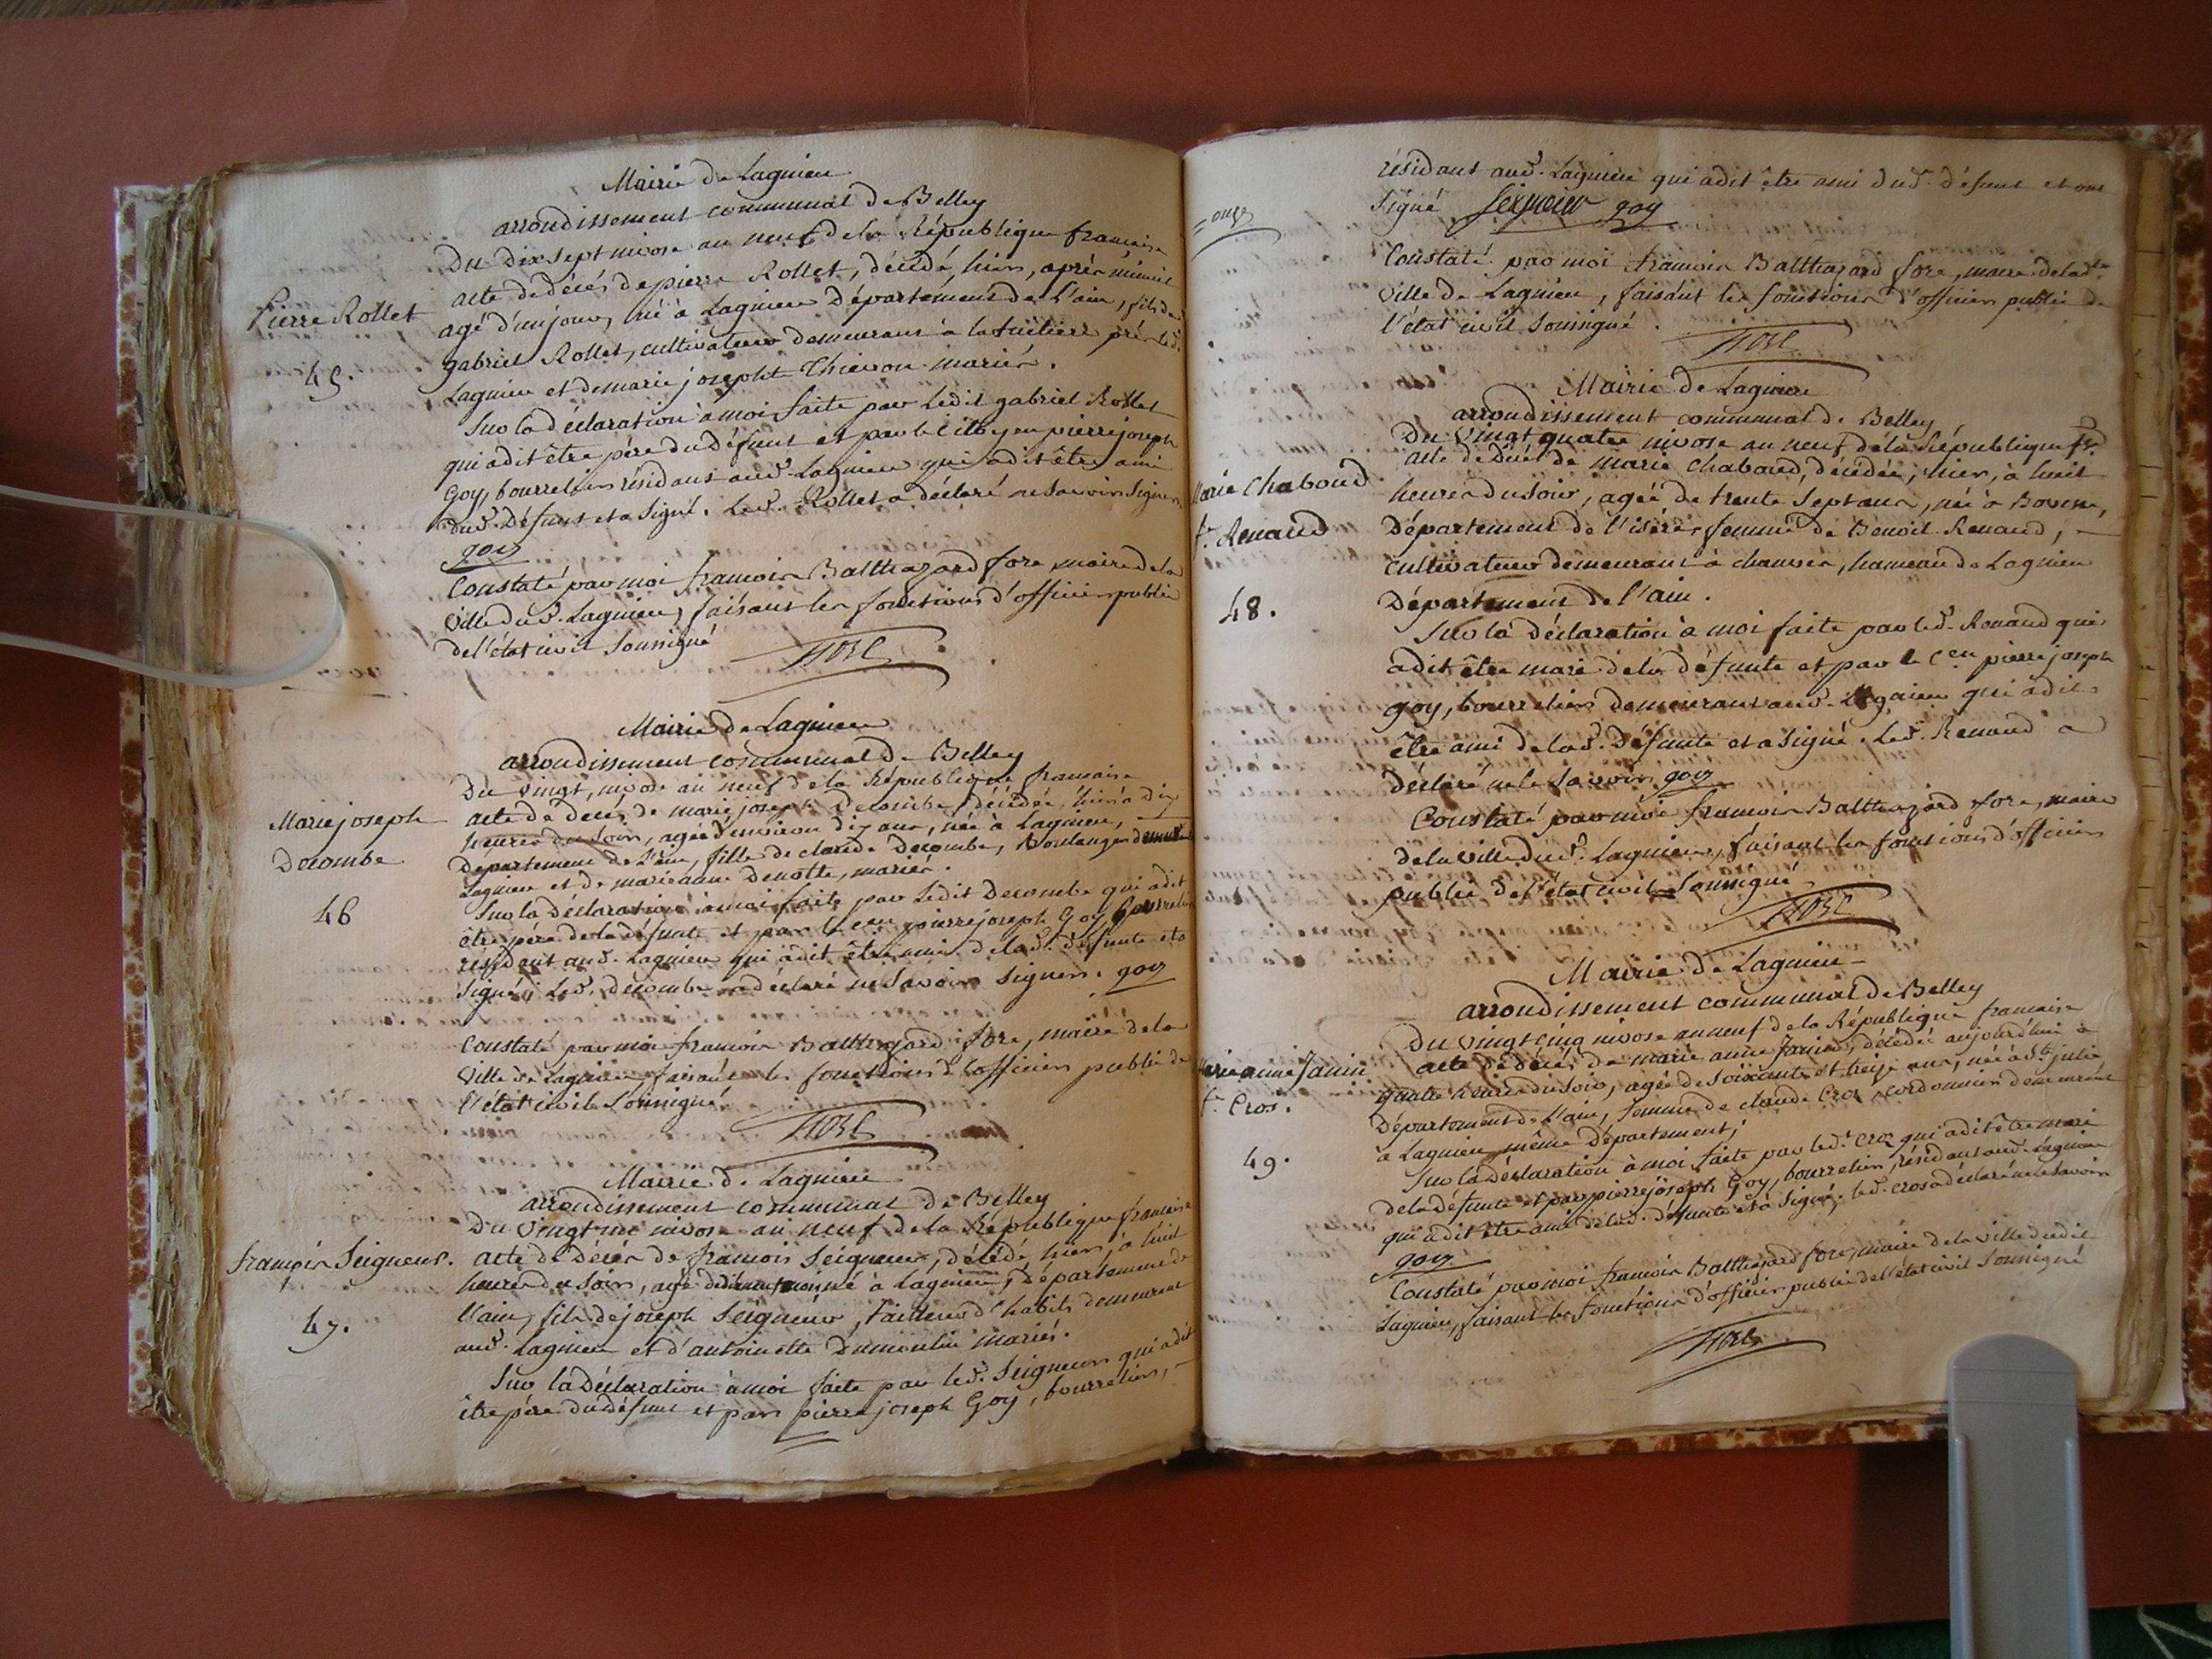 Mairie de Lagnieu
arrondissement communal de Belley
Du Dix sept nivose an neuf de la République francaise
acte de décés de pierre Rollet, décédé, hier, aprés minuit
Pierre Rollet
agé d'un jour, né à Lagnieu Département de L'ain, fils de
gabriel Rollet, cultivateur demeurant à la tuiliere prés led.
45.
Lagnieu et de marie josephte Thievon mariés.
Sur la déclaration à moi faite par Ledit gabriel Rollet
qui a dit être pére du défunt et par le citoyen pierre joseph
Goy, bourrelier résidant aud. Lagnieu qui a dit être ami
dud. Défunt et a signé. Led. Rollet a déclaré ne savoir signer.
goy
Constaté par moi francois Balthazard fore maire de la
ville dud. Lagnieu, faisant les fonctions d'officier public
de l'état civil soussigné
FORE
Mairie de Lagnieu
arrondissement communal de Belley
Du vingt, nivose an neuf de la République francaise
Marie joseph
acte de decés de marie joseph Decombe, décédée, hier à Dix
heures du soir, agée d'environ dix ans, née à Lagnieu,
Decombe
Département de L'ain, fille de claude Decombe, Boulanger
Lagnieu et de marie anne Denotte, mariés.
46
Sur la Déclaration à moi faite par Ledit Decombe qui a dit
être pére de la défunte et par le cen pierre joseph Goy, Bourrelier
résidant aud. Lagnieu qui a dit être ami de lad. défunte et a
signé; Led. decombe a déclaré ne savoir signer. goy
Constaté par moi francois Balthazard fore, maire de la
Ville de Lagnieu, faisant les fonctions d'officier public de
l'état civil soussigné
FORE
Mairie de Lagnieu
arrondissement communal de Belley
Du vingt un nivose an neuf de la République francaise
francois Seigneur.
acte de Décés de francois Seigneur, décédé, hier, à huit
heures du soir, agé né à Lagnieu, département de
47.
l'ain, fils de joseph Seigneur, Tailleur d'habits demeurant
aud. Lagnieu et d'antoinette Dumoulin mariés.
Sur la Déclaration à moi faite par led. Seigneur qui a dit
être pére du défunt et par pierre joseph Goy, bourrelier,
résidant aud. Lagnieu qui a dit être ami dud. défunt et ont
= onze
signé Seigneur goy
Constaté par moi francois Balthazard fore, maire de lad.
Ville de Lagnieu, faisant les fonctions d'officier public de
l'état civil soussigné.
FORE
Mairie de Lagnieu
arrondissement communal de Belley
Du Vingt quatre nivose an neuf de la République fse
Marie Chaboud
acte de Décés de marie Chaboud, décédée, hier, à huit
heures du soir, agée de trente sept ans, née à Bouesse,
fe. Renaud
Département de l'isére, femme de Benoit Renaud,
cultivateur demeurant à chanves, hameau de Lagnieu
48.
Département de l'ain.
Sur la Déclaration à moi faite par led. Renaud qui
a dit être mari de la défunte et par le cen pierre joseph
goy, bourrelier demeurant aud. Lagnieu qui a dit
être ami de lad. défunte et a signé. Led. Renaud a
déclaré ne le savoir. goy
Constaté par moi francois Balthazard fore, maire
de la ville dud. Lagnieu, faisant les fonctions d'officier
public de l'état civil soussigné
FORE
Mairie de Lagnieu
arrondissement communal de Belley
Du vingt cinq nivose an neuf de la République francaise
Marie anne Janin
acte de décés de marie anne Janin, décédée aujourd'hui à
quatre heures du soir, agée de soixante et treize ans, née à Ste julie
fe. Cros.
Département de l'ain, femme de claude Cros, cordonnier demeurant
à Lagnieu même Département;
49.
Sur la déclaration à moi faite par led. Cros qui a dit être mari
de la défunte et par pierre joseph Goy, bourrelier, résidant aud. Lagnieu
qui a dit être ami de lad. défunte et a signé. led. Cros a déclaré ne le savoir
goy
Constaté par moi francois Balthazard fore, maire de la ville dudit
Lagnieu, faisant les fonctions d'officier public de l'état civil soussigné
FORE